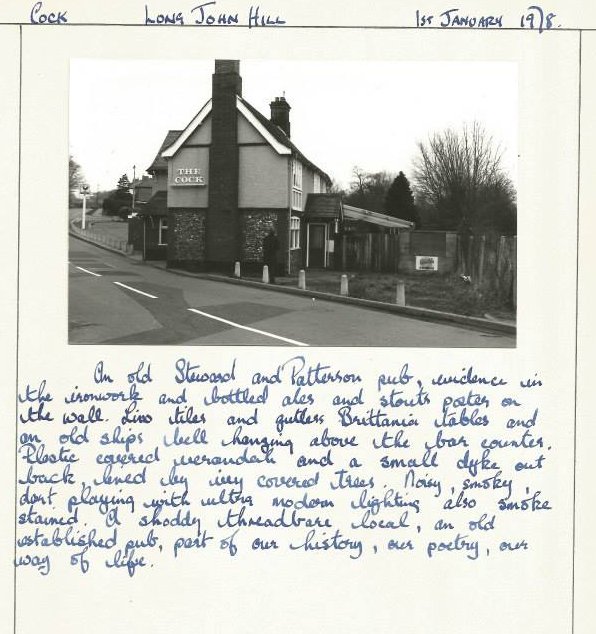 COCK LONG JOHN HILL 1ST JANUARY 1978.
THE
COCK
An old Steward and Patterson pub, evidence in
the ironwork and bottled ales and stouts poster on
the wall. Lino tiles and gutless Brittania tables and
an old ships bell hanging above the bar counter.
Plastic covered verandah and a small dyke out
back, lined by ivy covered trees. Noisy, smoky,
dart playing with ultra modern lighting also smoke
stained. A shoddy threadbare local, an old
established pub, part of our history, our poetry, our
way of life.